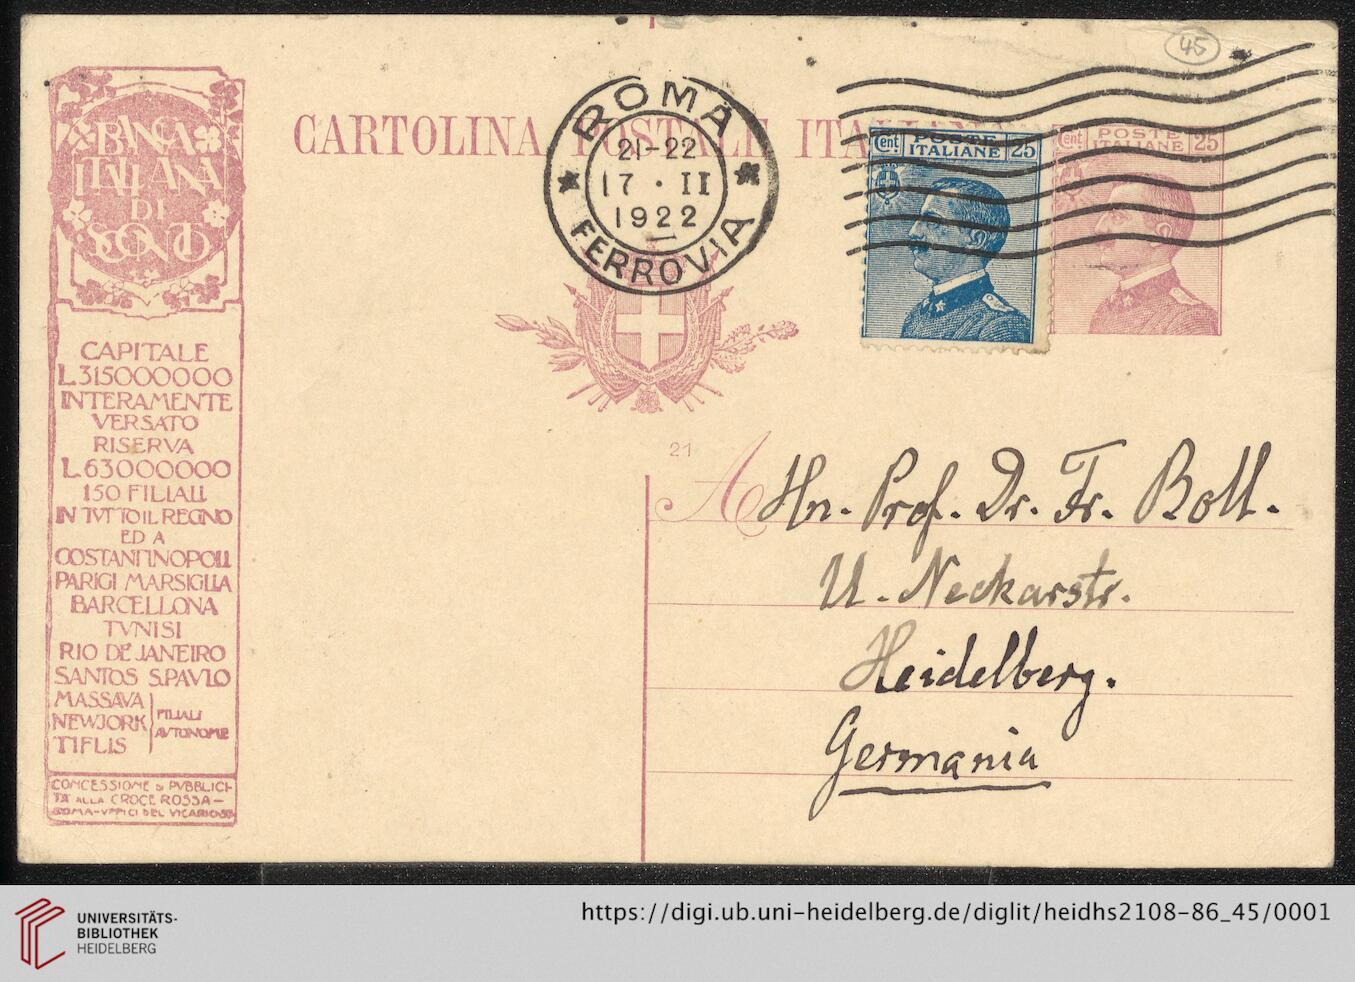 45
CARTOLINA POSTALE ITALIANA
ROMA
21-22
17 · II
1922
FERROVIA
Cent POSTE ITALIANE 25
Cent POSTE ITALIANE 25
BANCA
ITALIANA
DI
SCONTO
CAPITALE
L.315000000
INTERAMENTE
VERSATO
RISERVA
L.63000000
150 FILIALI
IN TVTTO IL REGNO
ED A
COSTANTINOPOLI
PARIGI MARSIGLIA
BARCELLONA
TVNISI
RIO DE JANEIRO
SANTOS S.PAVLO
MASSAVA
NEWJORK
TIFLIS
FILIALI
AVTONOME
CONCESSIONE DI PVBBLICI-
TÀ ALLA CROCE ROSSA-
ROMA-VFFICI DEL VICARIO
21
A Hn. Prof. Dr. Fr. Boll.
U. Neckarstr.
Heidelberg.
Germania
UNIVERSITÄTS-
BIBLIOTHEK
HEIDELBERG
https://digi.ub.uni-heidelberg.de/diglit/heidhs2108-86_45/0001